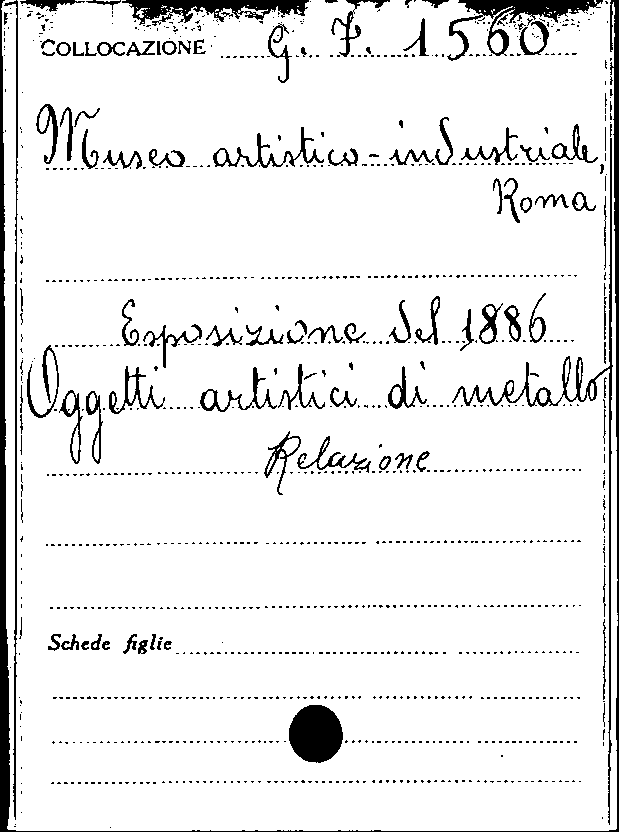 COLLOCAZIONE G. F. 1560
Museo artistico-industriale,
Roma
Esposizione del 1886
Oggetti artistici di metallo
Relazione
Schede figlie